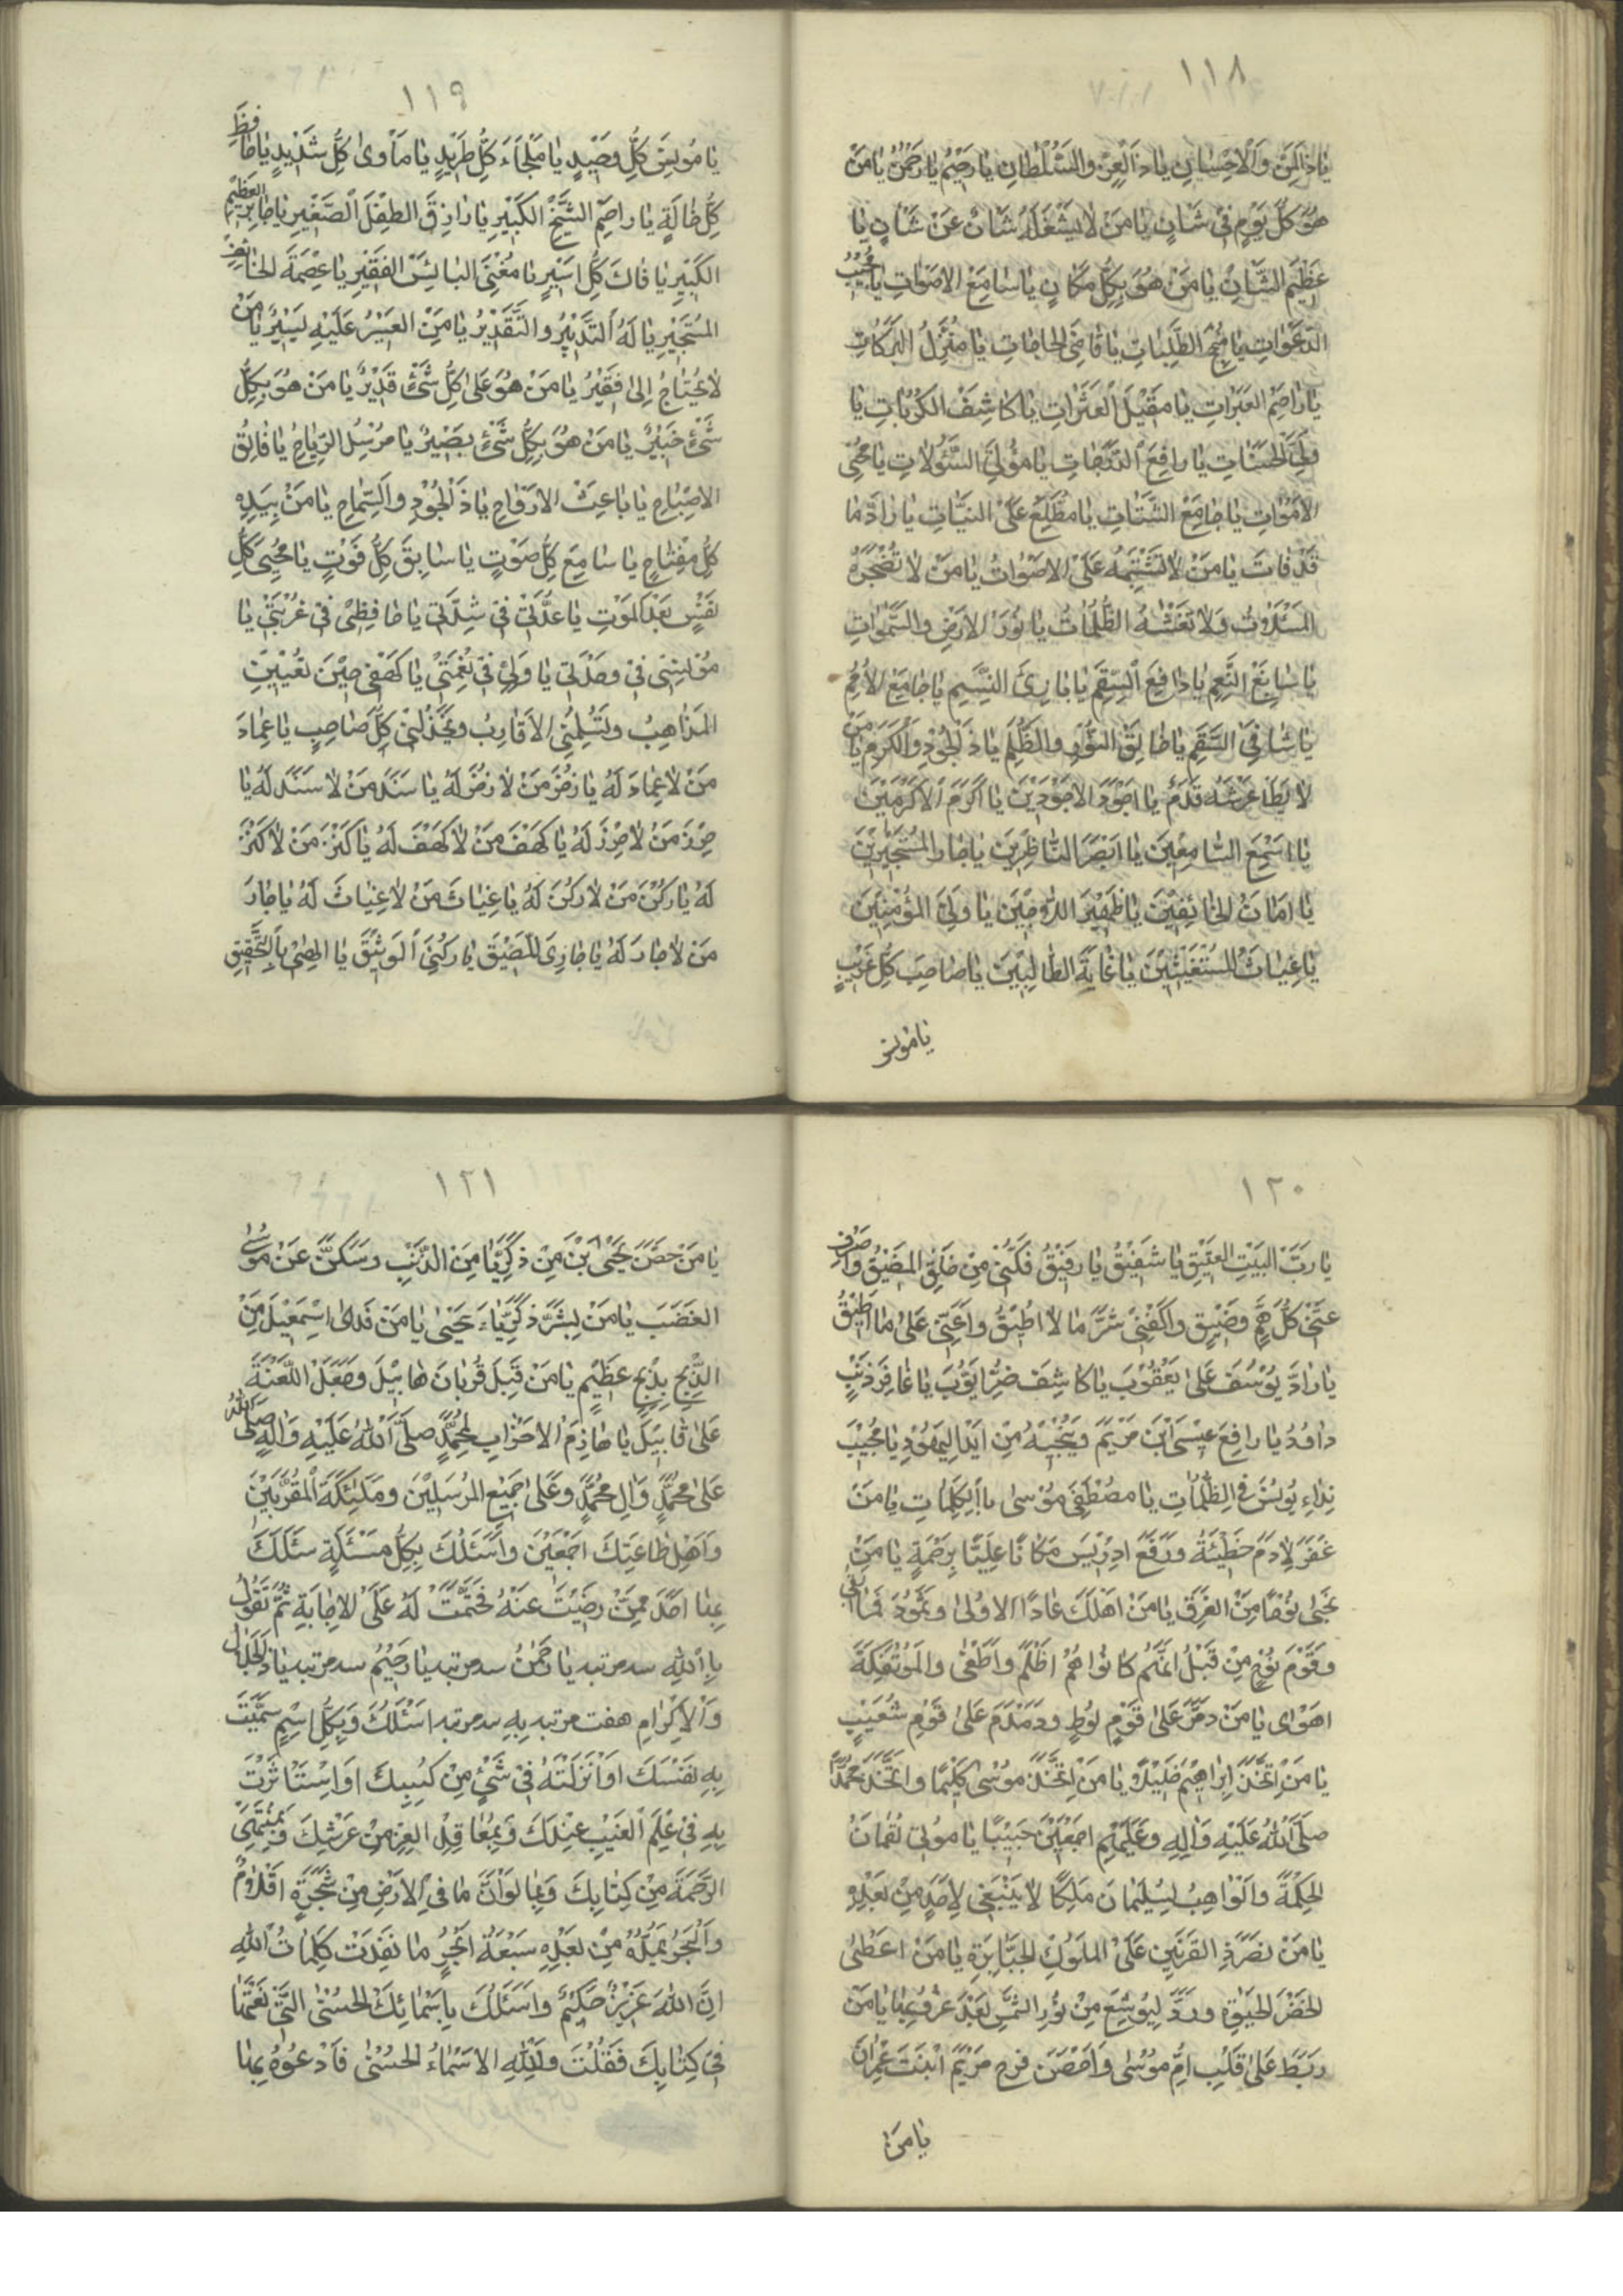 ١١٨
يا ذا المن والاحسان يا ذا العز والسلطان يا رحيم يا رحمن يا من
هو كل يوم في شان يا من لا يشغله شان عن شان يا
عظيم الشان يا من هو بكل مكان يا سامع الاصوات يا مجيب
الدعوات يا منجح الطلبات يا قاضي الحاجات يا منزل البركات
يا راحم العبرات يا مقيل العثرات يا كاشف الكربات يا
ولي الحسنات يا رافع الدرجات يا مؤلي السئولات يا محيي
الاموات يا جامع الشتات يا مطلع على النيات يا راد ما
قد فات يا من لا تشتبه على الاصوات يا من لا تضجره
المسئلات ولا تغشه الظلمات يا نور الارض والسموات
يا سابغ النعم يا دافع السقم يا بارئ النسيم يا جامع الامم
يا شافي السقم يا خالق النور والظلم يا ذا الجود والكرم يا من
لا يطا عرشه قدم يا اجود الاجودين يا اكرم الاكرمين
يا اسمع السامعين يا ابصر الناظرين يا جار المستجيرين
يا امان الخائفين يا ظهير الاجين يا ولي المؤمنين
يا غياث المستغيثين يا غاية الطالبين يا صاحب كل غريب
يا مونس
١١٩
يا مونس كل وحيد يا ملجاء كل طريد يا ماوى كل شديد يا حافظ
كل ضالة يا راحم الشيخ الكبير يا رازق الطفل الصغير يا جابر العظيم
الكبير يا فاك كل اسير يا مغني البائس الفقير يا عصمة الخائف
المستجير يا له التدبير والتقدير يا من العسير عليه يسير يا من
لا يحتاج الى فقير يا من هو على كل شئ قدير يا من هو بكل
شئ خبير يا من هو بكل شئ بصير يا مرسل الرياح يا فالق
الاصباح يا باعث الارواح يا ذا الجود والسماح يا من بيده
كل مفتاح يا سامع كل صوت يا سابق كل فوت يا محيي كل
نفس بعد الموت يا عدتي في شدتي يا حافظي في غربتي يا
مونسي في وحدتي يا ولي في نعمتي يا كهفي حين تعييني
المذاهب وتسلمني الاقارب ويخذلني كل صاحب يا عماد
من لا عماد له يا ذخر من لا ذخر له يا سند من لا سند له يا
حرز من لا حرز له يا كهف من لا كهف له يا كنز من لا كنز
له يا ركن من لا ركن له يا غياث من لا غياث له يا جار
من لا جار له يا جاري اللصيق يا ركني الوثيق يا الهي بالتحقيق
١٢٠
يا رب البيت العتيق يا شفيق يا رفيق فكني من حلق المضيق واصرف
عني كل هم وضيق واكفني شر ما لا اطيق واعني على ما اطيق
يا راد يوسف على يعقوب يا كاشف ضر ايوب يا غافر ذنب
داود يا رافع عيسى ابن مريم ومنجيه من ايد اليهود يا مجيب
نداء يونس في الظلمات يا مصطفى موسى بالكلمات يا من
غفر لادم خطيئة ورفع ادريس مكانا عليا برحمة يا من
نجى نوحا من الغرق يا من اهلك عادا الاولى وثمود فما ابقى
وقوم نوح من قبل انهم كانوا هم اظلم واطغى والموتفكة
اهوى يا من دمر على قوم لوط ودمدم على قوم شعيب
يا من اتخذ ابراهيم خليلا يا من اتخذ موسى كليما واتخذ محمدا
صلى الله عليه واله وعليهم اجمعين حبيبا يا موتي لقمان
الحكمة والواهب لسليمان ملكا لا ينبغي لاحد من بعده
يا من نصر ذا القرنين على الملوك الجبابرة يا من اعطى
الخضر الحيوة ورد ليوشع من نور الشمس بعد غروبها يا من
ربط على قلب ام موسى واحصن فرج مريم ابنت عمران
يا من
١٢١
يا من حصن يحيى بن من ذكريا من الذنب وسكن عن موسى
الغضب يا من بشر ذكرياء بيحيى يا من فدى اسمعيل من
الذبح بذبح عظيم يا من قبل قربان هابيل وجعل اللعنة
على قابيل يا هازم الاحزاب لمحمد صلى الله عليه واله صلى الله
على محمد وال محمد وعلى جميع المرسلين وملئكة المقربين
واهل طاعتك اجمعين واسئلك بكل مسئلة سئلك
بها احد ممن رضيت عنه فحتمت له على الاجابة ثم تقول
يا الله سه مرتبه يا رحمن سه مرتبه يا رحيم سه مرتبه يا ذا الجلال
والاكرام هفت مرتبه به سه مرتبه اسئلك وبكل اسم سميت
به نفسك او انزلته في شئ من كتبك او استاثرت
به في علم الغيب عندك وبمعاقد العز من عرشك وبمنتهى
الرحمة من كتابك وبما لو ان ما في الارض من شجرة اقلام
والبحر يمده من بعده سبعة ابحر ما نفدت كلمات الله
ان الله عزيز حكيم واسئلك باسمائك الحسنى التي نعتها
في كتابك فقلت ولله الاسماء الحسنى فادعوه بها